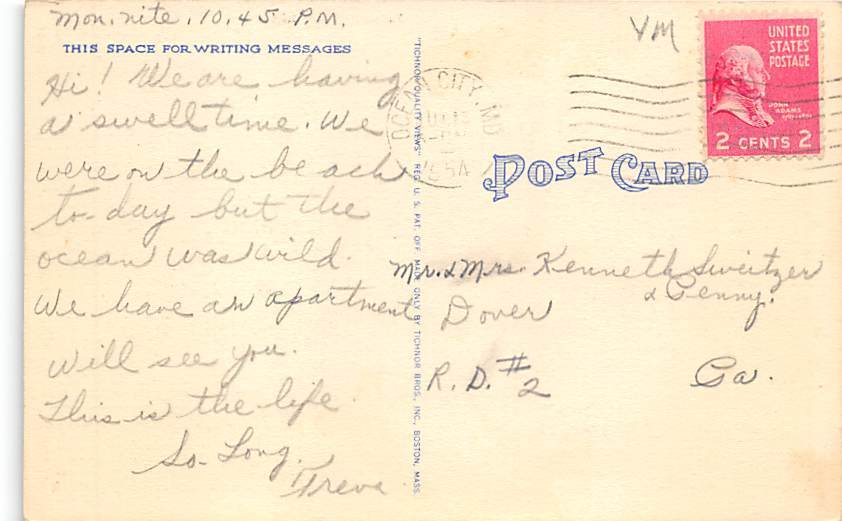 Mon. nite, 10.45 P.M.
THIS SPACE FOR WRITING MESSAGES
Hi! We are having
a swell time. We
were on the beach
to-day but the
ocean was wild.
We have an apartment
Will see you.
This is the life.
So-Long.
Treva
"TICHNOR QUALITY VIEWS" REG. U. S. PAT. OFF. MADE ONLY BY TICHNOR BROS., INC., BOSTON, MASS.
OCEAN CITY, MD
1954
VM
UNITED
STATES
POSTAGE
JOHN
ADAMS
2 CENTS 2
POST CARD
Mr. & Mrs. Kenneth Sweitzer
& Penny.
Dover
R. D. #2
Pa.